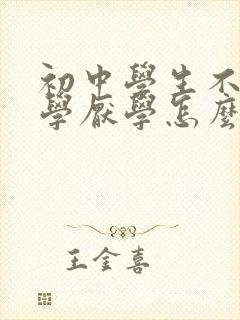 初中學生不
學厭學怎麼
王金喜